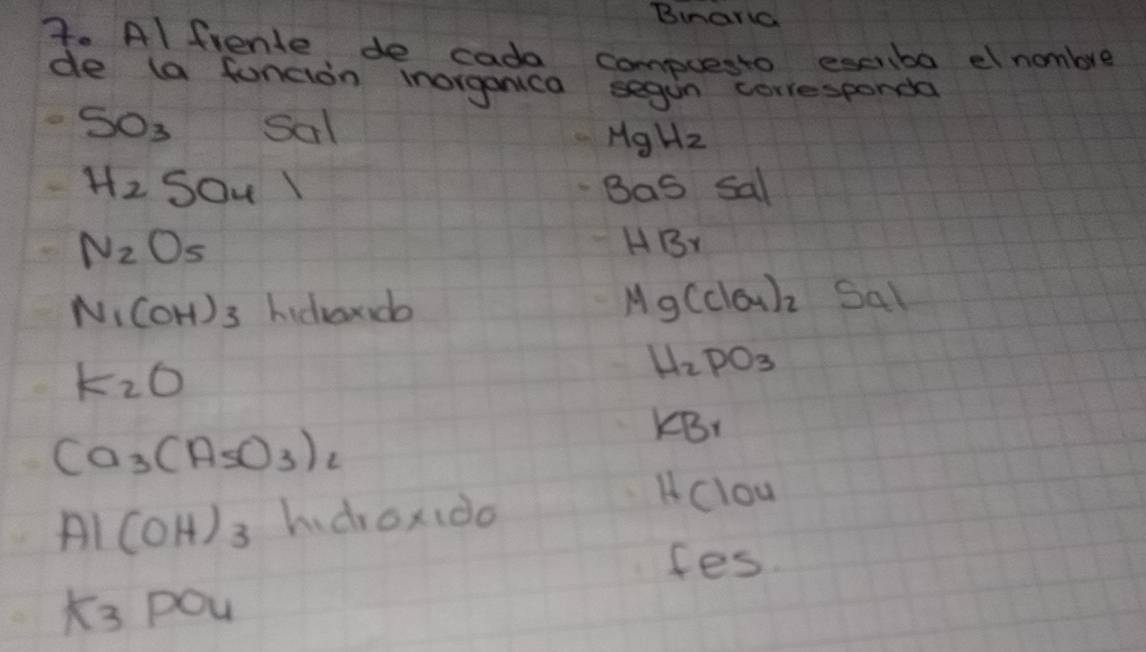 Binaria
7. Al frente de cada compuesto escriba el nombre
de la función inorganica segun corresponda
SO3 Sal
H2SO4 \
N2O5
Ni(OH)3 hidroxido
K2O
Ca3(AsO3)2
Al(OH)3 hidroxido
K3PO4
MgH2
BaS Sal
HBr
Mg(ClO4)2 Sal
H2PO3
KBr
HClO4
fes